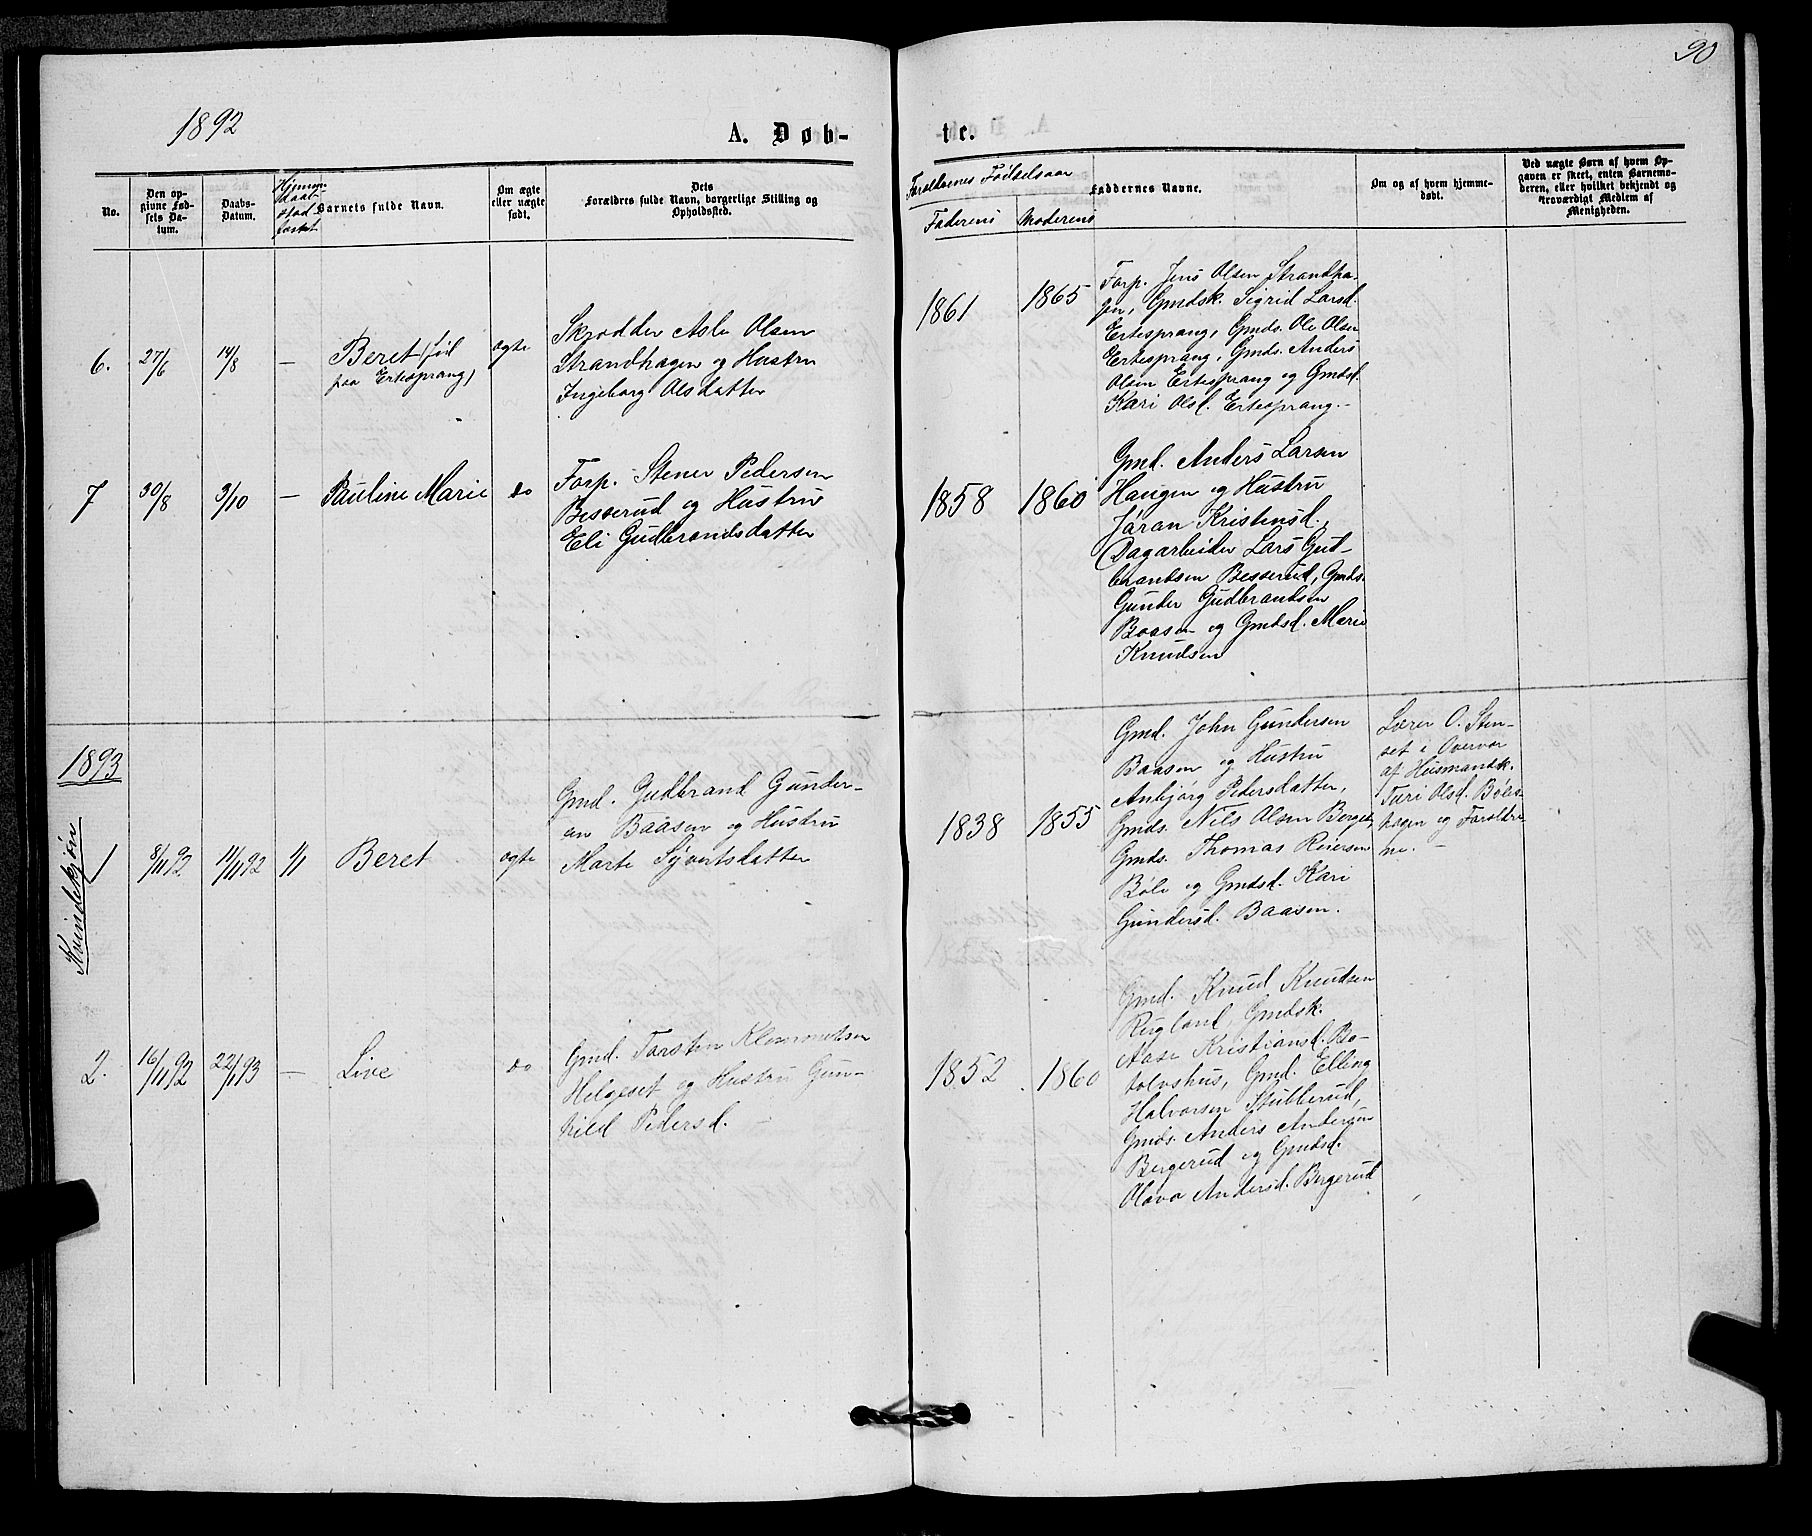 90
1892
A. Døb-
te.
No.
Den op-
givne Fød-
sels Da-
tum.
Daabs-
Datum.
Hjemme-
daab
stad-
fæstet
Barnets fulde Navn.
Om ægte
eller uægte
født.
Dets
Forældres fulde Navn, borgerlige Stilling og
Opholdssted.
Forældrenes Fødselsaar
Faderens
Moderens
Faddernes Navne.
Om og af hvem hjemme-
døbt.
Ved uægte Børn af hvem Op-
gaven er skeet, enten Barnemo-
deren, eller hvilket bekjendt og
troværdigt Medlem af
Menigheden.
6.
27/6
14/8
—
Beret (fød
paa Ertesprang)
ægte
Skrædder Asle Olsen
Strandhagen og Hustru
Ingeborg Olsdatter
1861
1865
Forp. Jens Olsen Strandha-
gen, Gmdsk. Sigrid Larsd.
Ertesprang, Gmds. Ole Olsen
Ertesprang, Gmds. Anders
Olsen Ertesprang og Gmdsd.
Kari Olsd. Ertesprang.
7
30/8
3/10
—
Pauline Marie
do
Forp. Stener Pedersen
Besserud og Hustru
Eli Gudbrandsdatter
1858
1860
Gmd. Anders Larsen
Haugen og Hustru
Jøran Kristensd.,
Dagarbeider Lars Gut-
brandsen Besserud, Gmds.
Gunder Gudbrandsen
Baasen og Gmdsd. Marie
Knudsen
1893
Kvindekjøn
1
8/11 92
14/11 92
1/1
Beret
ægte
Gmd. Gudbrand Gunder-
sen Baasen og Hustru
Marte Syvertsdatter
1838
1855
Gmd. John Gundersen
Baasen og Hustru
Anbjørg Pedersdatter,
Gmds. Nils Olsen Berget,
Gmds. Thomas Reiersen
Bøle og Gmdsd. Kari
Gundersd. Baasen.
Lærer O. Sten-
set i Overvær
af Husmandsk.
Turi Olsd. Bøle-
hagen og Forældre-
ne. —
2.
16/11 92
22/1 93
—
Live
do
Gmd. Torsten Klemmetsen
Helgeset og Hustru Gun-
hild Pedersd.
1852
1860
Gmd. Knud Knudsen
Rugland, Gmdsk.
Aase Kristiansd. Bo-
tolvshus, Gmd. Elling
Halvorsen Stubberud,
Gmds. Anders Andersen
Bergerud og Gmdsd.
Olava Andersd. Bergerud